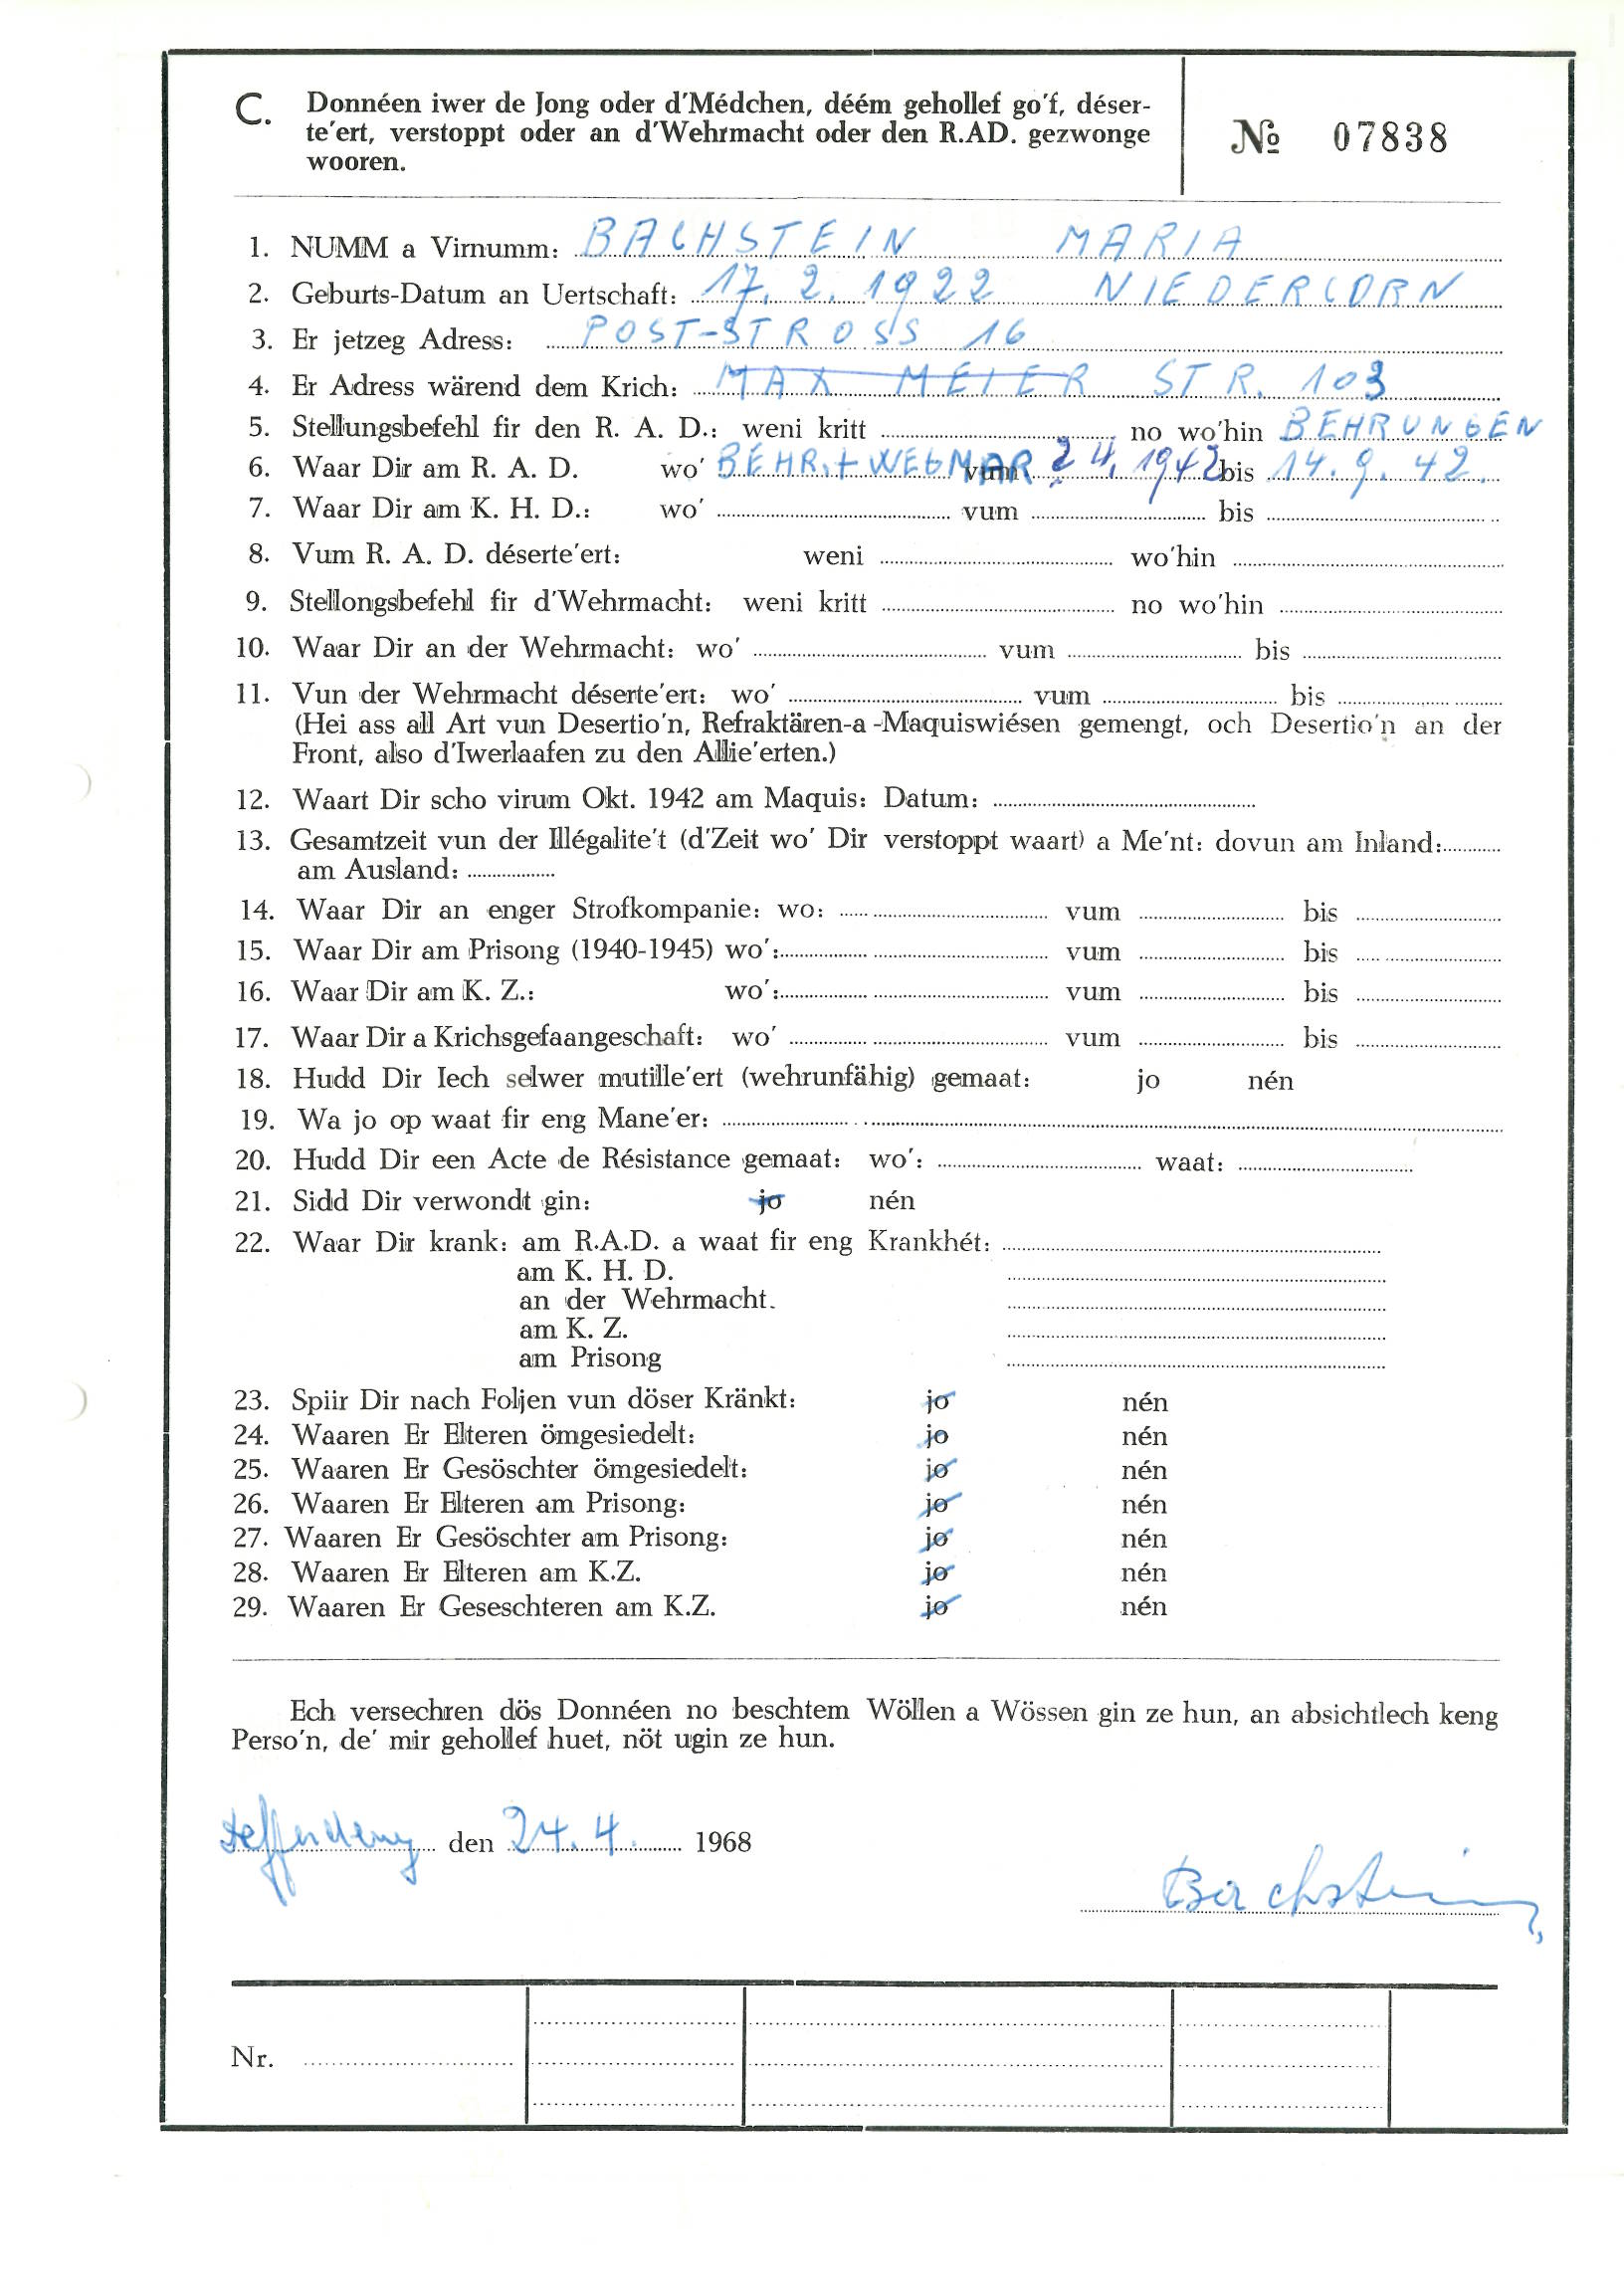 C. Donnéen iwer de Jong oder d'Médchen, déém gehollef go'f, déser-
te'ert, verstoppt oder an d'Wehrmacht oder den R.AD. gezwonge
wooren.
№ 07838
1. NUMM a Virnumm: BACHSTEIN MARIA
2. Geburts-Datum an Uertschaft: 17. 2. 1922 NIEDERCORN
3. Er jetzeg Adress: POST-STROSS 16
4. Er Adress wärend dem Krich: MAX MEIER STR. 103
5. Stellungsbefehl fir den R. A. D.: weni kritt no wo'hin BEHRUNGEN
6. Waar Dir am R. A. D. wo' BEHR. + WEGMAR vum 2 4. 1942 bis 14. 9. 42.
7. Waar Dir am K. H. D.: wo' vum bis
8. Vum R. A. D. déserte'ert: weni wo'hin
9. Stellongsbefehl fir d'Wehrmacht: weni kritt no wo'hin
10. Waar Dir an der Wehrmacht: wo' vum bis
11. Vun der Wehrmacht déserte'ert: wo' vum bis
(Hei ass all Art vun Desertio'n, Refraktären-a-Maquiswiésen gemengt, och Desertio'n an der
Front, also d'Iwerlaafen zu den Allie'erten.)
12. Waart Dir scho virum Okt. 1942 am Maquis: Datum:
13. Gesamtzeit vun der Illégalite't (d'Zeit wo' Dir verstoppt waart) a Me'nt: dovun am Inland:
am Ausland:
14. Waar Dir an enger Strofkompanie: wo: vum bis
15. Waar Dir am Prisong (1940-1945) wo': vum bis
16. Waar Dir am K. Z.: wo': vum bis
17. Waar Dir a Krichsgefaangeschaft: wo' vum bis
18. Hudd Dir Iech selwer mutille'ert (wehrunfähig) gemaat: jo nén
19. Wa jo op waat fir eng Mane'er:
20. Hudd Dir een Acte de Résistance gemaat: wo': waat:
21. Sidd Dir verwondt gin: jo nén
22. Waar Dir krank: am R.A.D. a waat fir eng Krankhét:
am K. H. D.
an der Wehrmacht.
am K. Z.
am Prisong
23. Spiir Dir nach Foljen vun döser Kränkt: jo nén
24. Waaren Er Elteren ömgesiedelt: jo nén
25. Waaren Er Gesöschter ömgesiedelt: jo nén
26. Waaren Er Elteren am Prisong: jo nén
27. Waaren Er Gesöschter am Prisong: jo nén
28. Waaren Er Elteren am K.Z. jo nén
29. Waaren Er Geseschteren am K.Z. jo nén
Ech versechren dös Donnéen no beschtem Wöllen a Wössen gin ze hun, an absichtlech keng
Perso'n, de' mir gehollef huet, nöt ugin ze hun.
den 24. 4. 1968
Bachstein
Nr.